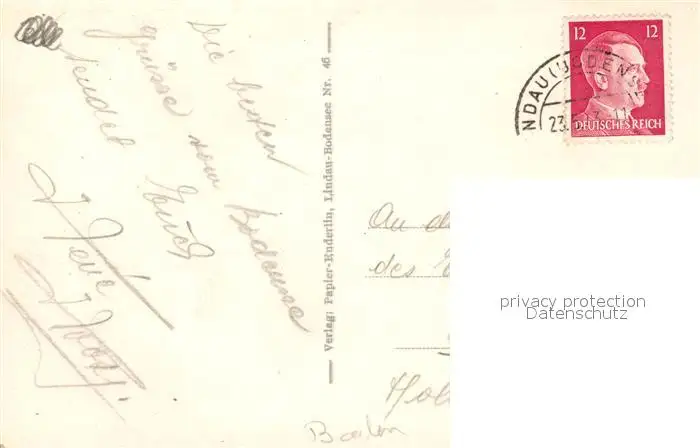 Die besten
Grüsse vom Bodensee
sendet Euch
Verlag: Papier-Enderlin, Lindau-Bodensee Nr. 46
12 12
DEUTSCHES REICH
NDAU (BODENS
23.
An d
des
Hol
privacy protection
Datenschutz